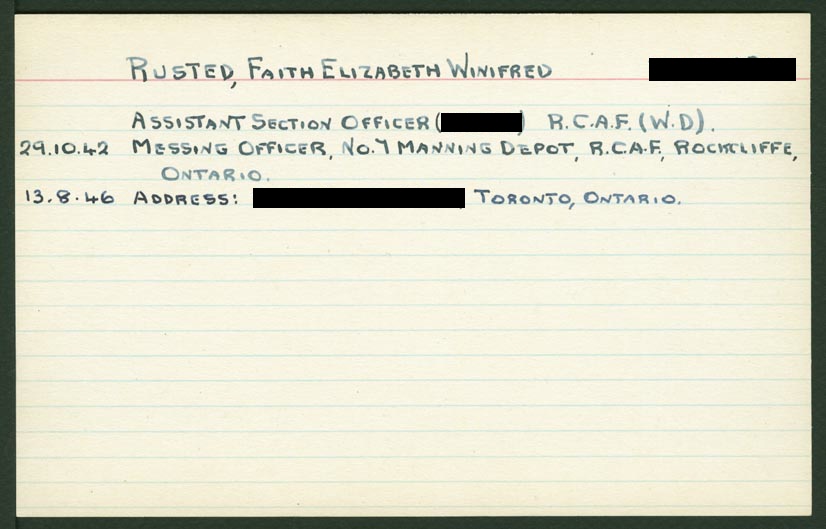 RUSTED, FAITH ELIZABETH WINIFRED
ASSISTANT SECTION OFFICER ( ) R.C.A.F. (W.D).
29.10.42 MESSING OFFICER, NO.7 MANNING DEPOT, R.C.A.F, ROCKCLIFFE,
ONTARIO.
13.8.46 ADDRESS: TORONTO, ONTARIO.